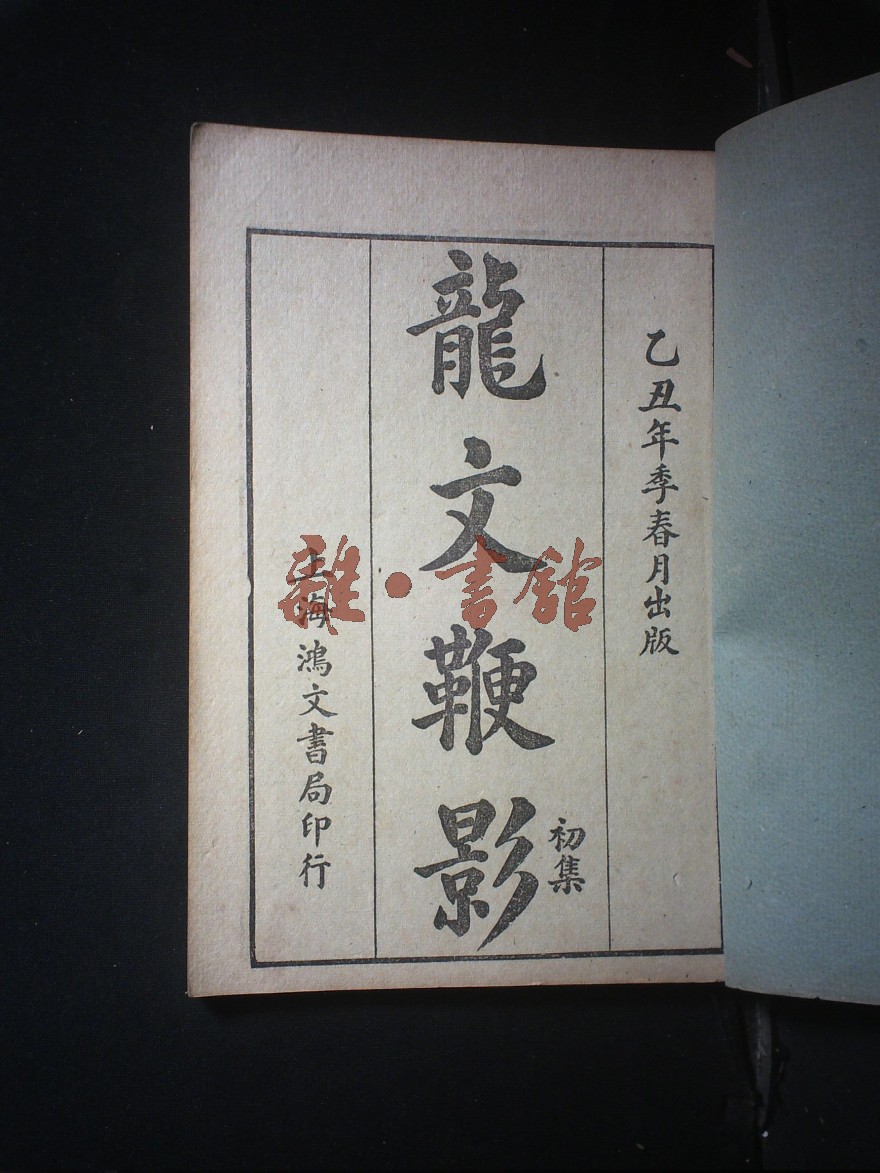 乙丑年季春月出版
龍文鞭影
初集
上海鴻文書局印行
雜·書館